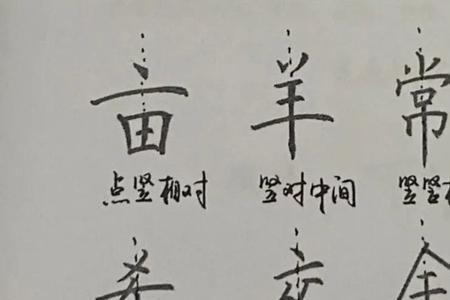 亩 羊 常
点竖相对 竖对中间 竖竖
全